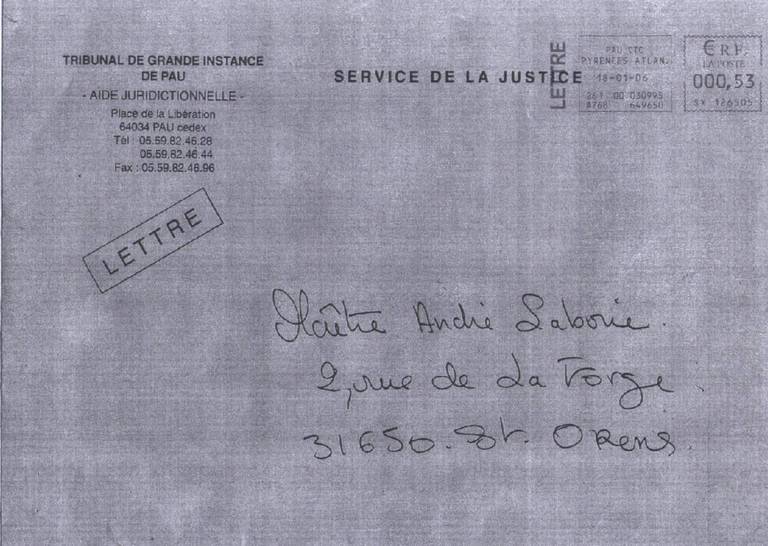 TRIBUNAL DE GRANDE INSTANCE
DE PAU
- AIDE JURIDICTIONNELLE -
Place de la Libération
64034 PAU cedex
Tél : 05.59.82.46.28
05.59.82.46.44
Fax : 05.59.82.46.96
SERVICE DE LA JUSTICE
LETTRE
PAU CTC
PYRENEES ATLAN.
18-01-06
261 00 030995
A768 649650
€ R.F.
LA POSTE
000,53
SX 126505
LETTRE
Maître André Laborie.
2, rue de La Forge
31650. St. Orens.